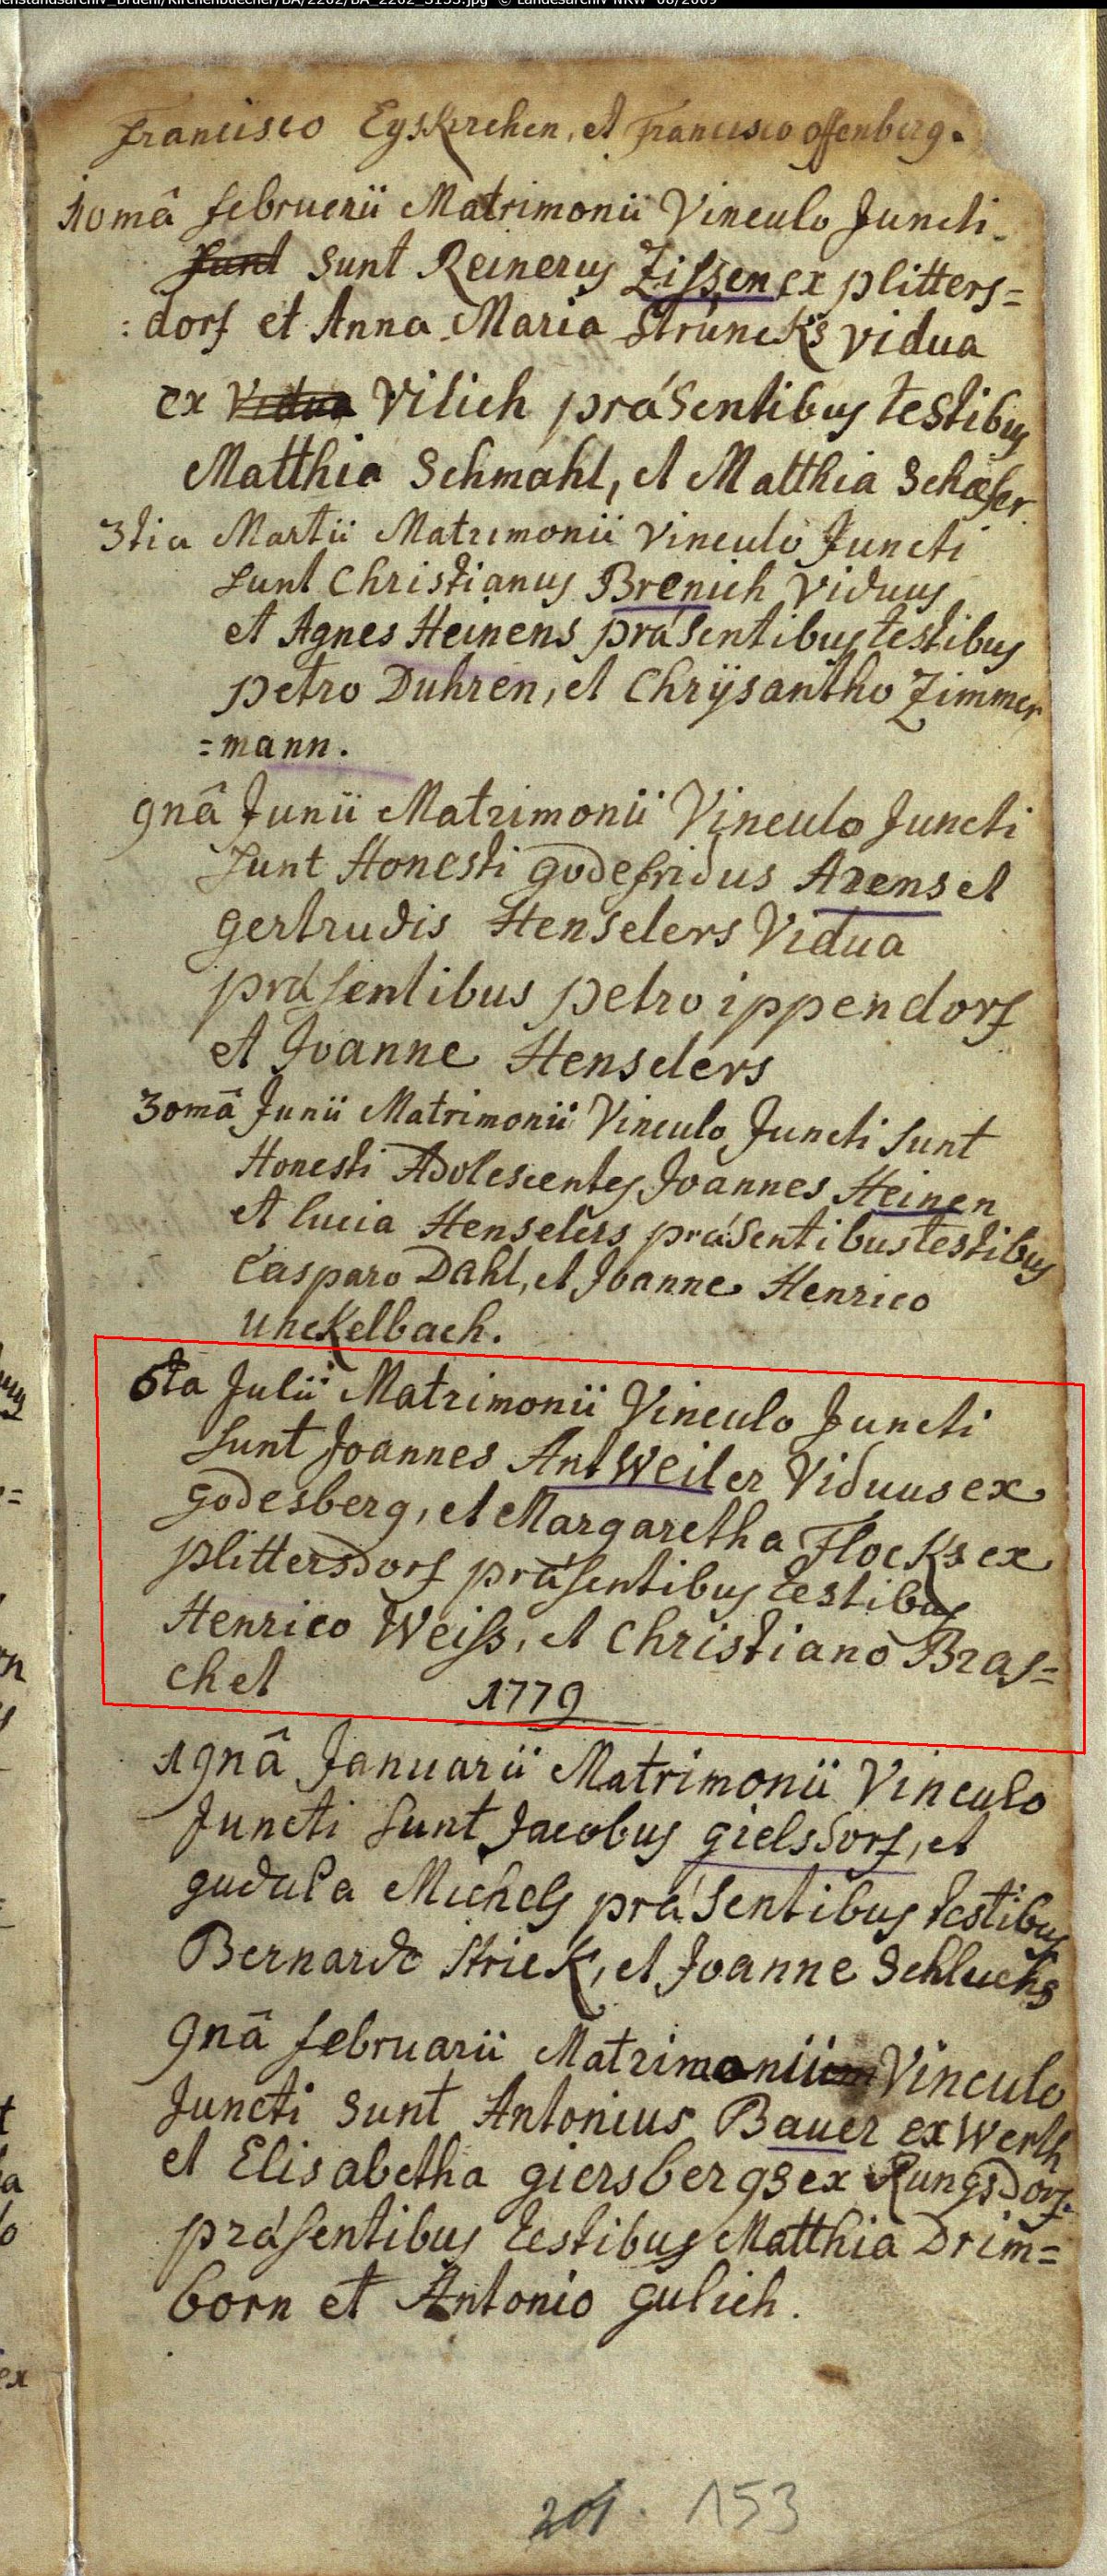 enstandsarchiv_Bruehl/Kirchenbuecher/BA/2262/BA_2262_S153.jpg © Landesarchiv NRW 06/2009
Francisco Eyskirchen, et Francisco offenberg.
10mâ februarii Matrimonii Vinculo Juncti
sunt Sunt Reinerus Zissen ex plitters=
:dorf et Anna Maria Strüncks vidua
ex Vidua Vilich präsentibus testibus
Matthia Schmahl, et Matthia Schæfer
3tia Martii Matrimonii Vinculo Juncti
sunt Christianus Brenich Viduus
et Agnes Heinens präsentibus testibus
petro Duhren, et Chrÿsantho Zimmer
=mann.
9nâ Junii Matrimonii Vinculo Juncti
sunt Honesti Godefridus Arens et
gertrudis Henselers Vidua
präsentibus petro ippendorf
et Joanne Henselers
30mâ Junii Matrimonii Vinculo Juncti Sunt
Honesti Adolescentes Joannes Heinen
et lucia Henselers präsentibus testibus
Casparo Dahl, et Joanne Henrico
unckelbach.
6ta Julii Matrimonii Vinculo Juncti
sunt Joannes AntWeiler Viduus ex
godesberg, et Margaretha Flocks ex
plittersdorf präsentibus testibus
Henrico Weiss, et Christiano Bras=
chel
1779
19nâ Januarii Matrimonii Vinculo
Juncti sunt Jacobus gielsdorf, et
gudula Michels präsentibus testibus
Bernardo Strick, et Joanne Schluchs
9nâ februarii Matrimonii Vinculo
Juncti Sunt Antonius Bauer ex Werth
et Elisabetha giersbergs ex Rungsdorf
präsentibus testibus Matthia Drim=
born et Antonio gulich.
201. 153